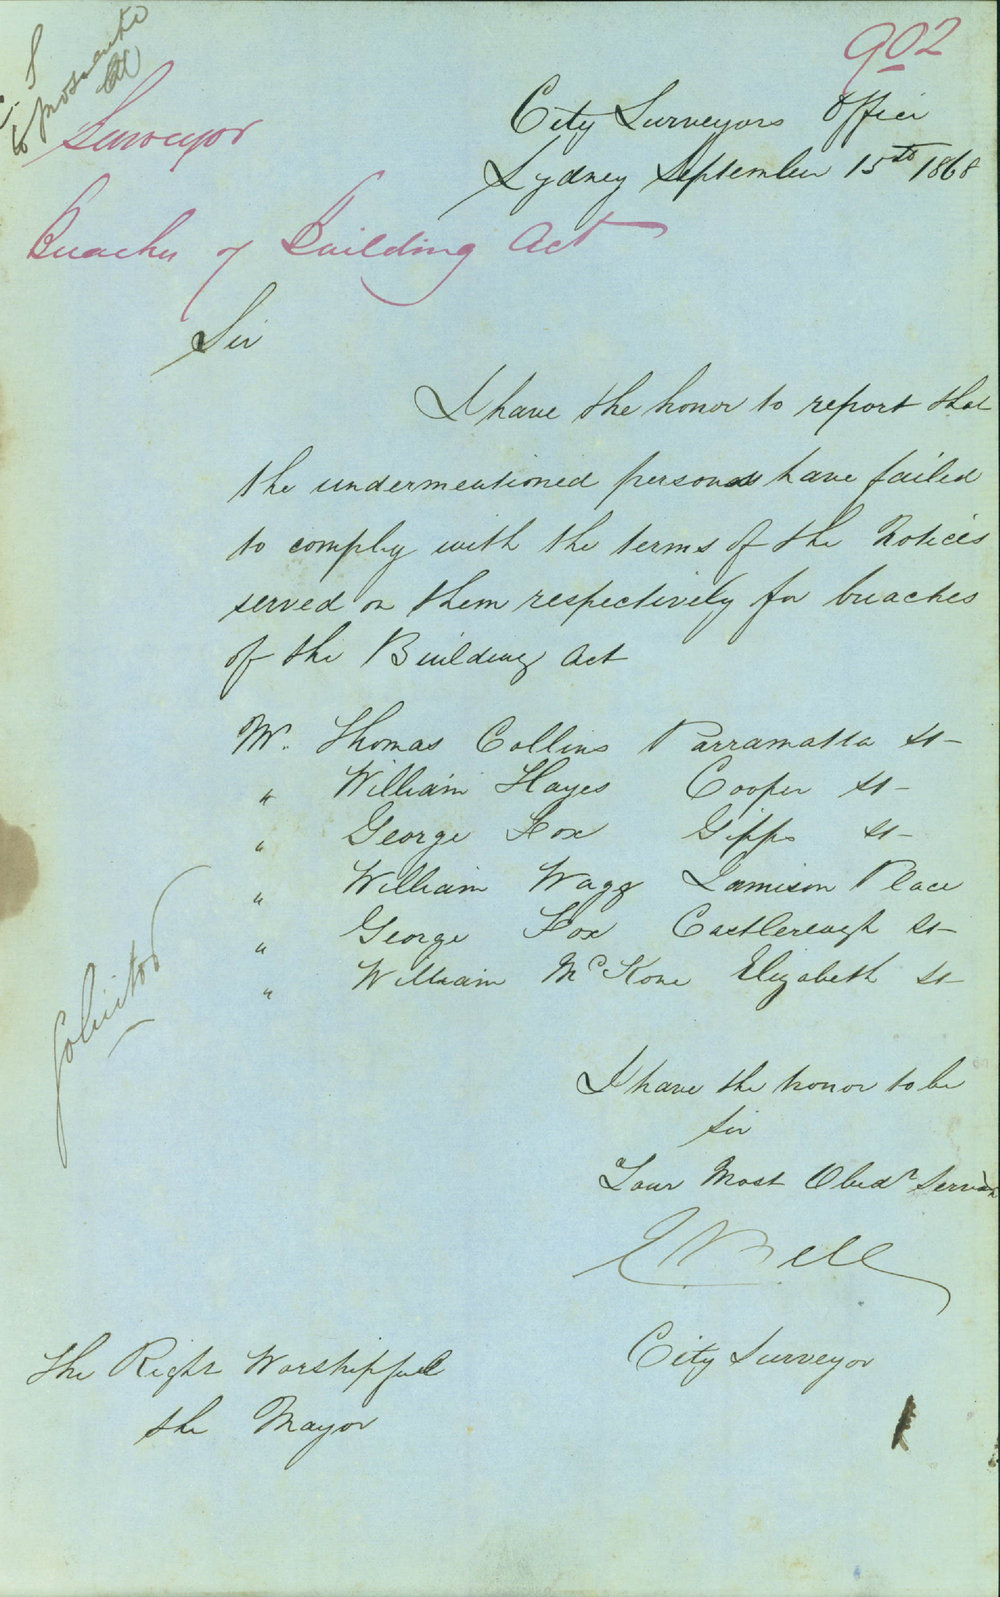 902
C. S
to prosecute
Surveyor
City Surveyors Office
Sydney September 15th 1868
Breaches of Building Act
Sir
I have the honor to report that
the undermentioned persons have failed
to comply with the terms of the Notices
served on them respectively for breaches
of the Building Act
Mr. Thomas Collins Parramatta St-
" William Hayes Cooper St-
" George Fox Gipps St-
" William Wagg Jamison Place
" George Fox Castlereagh St-
" William McKone Elizabeth St-
Solicitor
I have the honor to be
Sir
Your Most Obedt Servant
E Bell
City Surveyor
The Right Worshipful
the Mayor